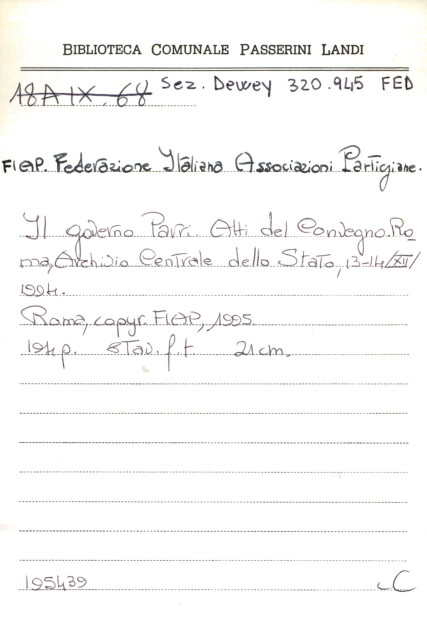 BIBLIOTECA COMUNALE PASSERINI LANDI
18 A IX. 68 Sez. Dewey 320.945 FED
FIAP. Federazione Italiana Associazioni Partigiane.
Il governo Parri. Atti del Convegno. Ro=
ma, Archivio Centrale dello Stato, 13-14/XII/
1994.
Roma, copyr. FIAP, 1995.
194 p. 8 Tav. f. t. 21 cm.
195439 C